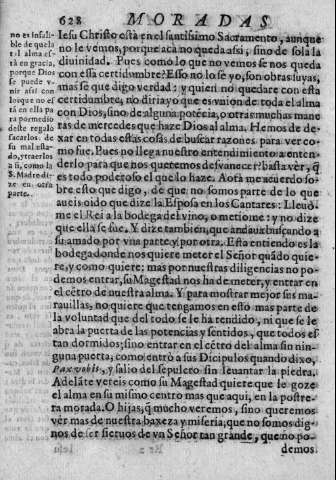 628 MORADAS
no es infali-
ble de que la
tal alma està
en gracia,
porque Dios
se puede v-
nir assi con
los que no es
tà en ella pa
ra por medio
deste regalo
sacarlos de
su mal esta-
do, y traerlos
a si, como la
S. Madre di-
ze en otra
parte.
Iesu Christo està en el santissimo Sacramento, aunque
no le vemos, porque acà no queda assi, sino de sola la
diuinidad. Pues como lo que no vemos se nos queda
con essa certidumbre? Esso no lo sè yo, son obras suyas,
mas sè que digo verdad: y quien no quedare con esta
certidumbre, no diria yo que es vnion de toda el alma
con Dios, sino de alguna potēcia, o otras muchas mane
ras de mercedes que haze Dios al alma. Hemos de de-
xar en todas estas cosas de buscar razones para ver co-
mo fue. Pues no llega nuestro entendimiento a enten-
derlo para que nos queremos desuanecer? basta ver, q̃
es todo poderoso el que lo haze. Aora me acuerdo so-
bre esto que digo, de que no somos parte de lo que
aueis oido que dize la Esposa en los Cantares: Lleuò-
me el Rei a la bodega del vino, o metiome: y no dize
que ella se fue. Y dize tambien, que andaua buscando a
su amado por vna parte y por otra. Esta entiendo es la
bodega donde nos quiere meter el Señor quãdo quie-
re, y como quiere; mas por nuestras diligencias no po-
demos entrar, su Magestad nos ha de meter, y entrar en
el cētro de nuestra alma. Y para mostrar mejor sus ma-
rauillas, no quiere que tengamos en esto mas parte de
la voluntad que del todo se le ha rendido, ni que se le
abra la puerta de las potencias y sentidos, que todos es-
tan dormidos; sino entrar en el cētro del alma sin nin-
guna puerta; como entrò a sus Dicipulos quando dixo,
Pax vobis, y salio del sepulcro sin leuantar la piedra.
Adelāte vereis como su Magestad quiere que le goze
el alma en su mismo centro mas que aqui, en la postre-
ra morada. O hijas, q̃ mucho veremos, sino queremos
ver mas de nuestra baxeza y miseria, que no somos dig-
nos de ser sieruos de vn Señor tan grande, que no po-
demos